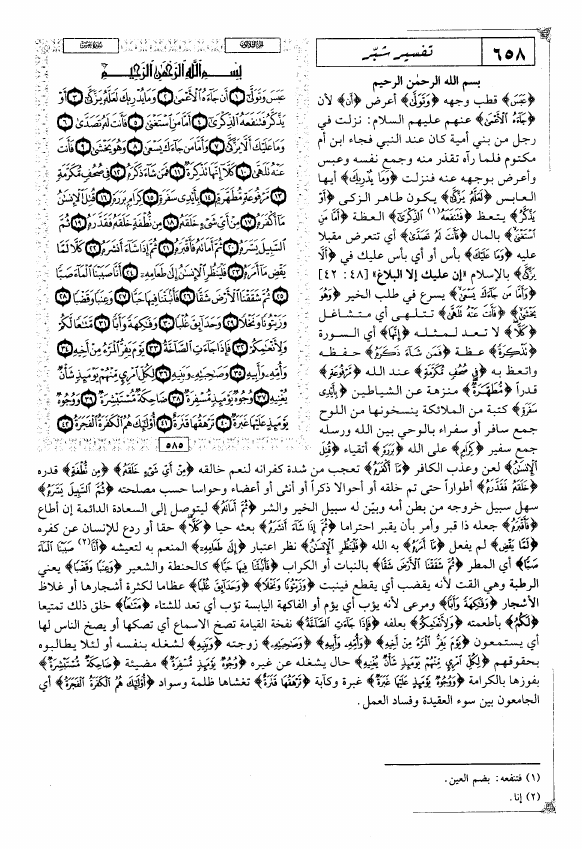 ٦٥٨
تفسير شبّر
بسم الله الرحمٰن الرحيم
﴿عَبَسَ﴾ قطب وجهه ﴿وَتَوَلَّىٰ﴾ أعرض ﴿أَن﴾ لأن
﴿جَاءَهُ الْأَعْمَىٰ﴾ عنهم عليهم السلام: نزلت في
رجل من بني أمية كان عند النبي فجاء ابن أم
مكتوم فلما رآه تقذر منه وجمع نفسه وعبس
وأعرض بوجهه عنه فنزلت ﴿وَمَا يُدْرِيكَ﴾ أيها
العابس ﴿لَعَلَّهُ يَزَّكَّىٰ﴾ يكون طاهر الزكي ﴿أَوْ
يَذَّكَّرُ﴾ يتعظ ﴿فَتَنفَعَهُ(١) الذِّكْرَىٰ﴾ العظة ﴿أَمَّا مَنِ
اسْتَغْنَىٰ﴾ بالمال ﴿فَأَنتَ لَهُ تَصَدَّىٰ﴾ أي تتعرض مقبلا
عليه ﴿وَمَا عَلَيْكَ﴾ بأس أو أي بأس عليك في ﴿أَلَّا
يَزَّكَّىٰ﴾ بالإسلام «إن عليك إلا البلاغ» [٤٨: ٤٢]
﴿وَأَمَّا مَن جَاءَكَ يَسْعَىٰ﴾ يسرع في طلب الخير ﴿وَهُوَ
يَخْشَىٰ﴾ ﴿فَأَنتَ عَنْهُ تَلَهَّىٰ﴾ تتلهى أي متشاغل
﴿كَلَّا﴾ لا تعد لمثله ﴿إِنَّهَا﴾ أي السورة
﴿تَذْكِرَةٌ﴾ عظة ﴿فَمَن شَاءَ ذَكَرَهُ﴾ حفظه
واتعظ به ﴿فِي صُحُفٍ مُّكَرَّمَةٍ﴾ عند الله ﴿مَّرْفُوعَةٍ﴾
قدراً ﴿مُّطَهَّرَةٍ﴾ منزهة عن الشياطين ﴿بِأَيْدِي
سَفَرَةٍ﴾ كتبة من الملائكة ينسخونها من اللوح
جمع سافر أو سفراء بالوحي بين الله ورسله
جمع سفير ﴿كِرَامٍ﴾ على الله ﴿بَرَرَةٍ﴾ أتقياء ﴿قُتِلَ
بِسْمِ اللَّهِ الرَّحْمَٰنِ الرَّحِيمِ
عَبَسَ وَتَوَلَّىٰ ١ أَن جَاءَهُ الْأَعْمَىٰ ٢ وَمَا يُدْرِيكَ لَعَلَّهُ يَزَّكَّىٰ ٣ أَوْ
يَذَّكَّرُ فَتَنفَعَهُ الذِّكْرَىٰ ٤ أَمَّا مَنِ اسْتَغْنَىٰ ٥ فَأَنتَ لَهُ تَصَدَّىٰ ٦
وَمَا عَلَيْكَ أَلَّا يَزَّكَّىٰ ٧ وَأَمَّا مَن جَاءَكَ يَسْعَىٰ ٨ وَهُوَ يَخْشَىٰ ٩ فَأَنتَ
عَنْهُ تَلَهَّىٰ ١٠ كَلَّا إِنَّهَا تَذْكِرَةٌ ١١ فَمَن شَاءَ ذَكَرَهُ ١٢ فِي صُحُفٍ مُّكَرَّمَةٍ
١٣ مَّرْفُوعَةٍ مُّطَهَّرَةٍ ١٤ بِأَيْدِي سَفَرَةٍ ١٥ كِرَامٍ بَرَرَةٍ ١٦ قُتِلَ الْإِنسَانُ
مَا أَكْفَرَهُ ١٧ مِنْ أَيِّ شَيْءٍ خَلَقَهُ ١٨ مِن نُّطْفَةٍ خَلَقَهُ فَقَدَّرَهُ ١٩ ثُمَّ
السَّبِيلَ يَسَّرَهُ ٢٠ ثُمَّ أَمَاتَهُ فَأَقْبَرَهُ ٢١ ثُمَّ إِذَا شَاءَ أَنشَرَهُ ٢٢ كَلَّا لَمَّا
يَقْضِ مَا أَمَرَهُ ٢٣ فَلْيَنظُرِ الْإِنسَانُ إِلَىٰ طَعَامِهِ ٢٤ أَنَّا صَبَبْنَا الْمَاءَ صَبًّا
٢٥ ثُمَّ شَقَقْنَا الْأَرْضَ شَقًّا ٢٦ فَأَنبَتْنَا فِيهَا حَبًّا ٢٧ وَعِنَبًا وَقَضْبًا ٢٨
وَزَيْتُونًا وَنَخْلًا ٢٩ وَحَدَائِقَ غُلْبًا ٣٠ وَفَاكِهَةً وَأَبًّا ٣١ مَّتَاعًا لَّكُمْ
وَلِأَنْعَامِكُمْ ٣٢ فَإِذَا جَاءَتِ الصَّاخَّةُ ٣٣ يَوْمَ يَفِرُّ الْمَرْءُ مِنْ أَخِيهِ ٣٤
وَأُمِّهِ وَأَبِيهِ ٣٥ وَصَاحِبَتِهِ وَبَنِيهِ ٣٦ لِكُلِّ امْرِئٍ مِّنْهُمْ يَوْمَئِذٍ شَأْنٌ
يُغْنِيهِ ٣٧ وُجُوهٌ يَوْمَئِذٍ مُّسْفِرَةٌ ٣٨ ضَاحِكَةٌ مُّسْتَبْشِرَةٌ ٣٩ وَوُجُوهٌ
يَوْمَئِذٍ عَلَيْهَا غَبَرَةٌ ٤٠ تَرْهَقُهَا قَتَرَةٌ ٤١ أُولَٰئِكَ هُمُ الْكَفَرَةُ الْفَجَرَةُ ٤٢
٥٨٥
الْإِنسَانُ﴾ لعن وعذب الكافر ﴿مَا أَكْفَرَهُ﴾ تعجب من شدة كفرانه لنعم خالقه ﴿مِنْ أَيِّ شَيْءٍ خَلَقَهُ﴾ ﴿مِن نُّطْفَةٍ﴾ قدره
﴿خَلَقَهُ فَقَدَّرَهُ﴾ أطواراً حتى تم خلقه أو أحوالا ذكراً أو أنثى أو أعضاء وحواسا حسب مصلحته ﴿ثُمَّ السَّبِيلَ يَسَّرَهُ﴾
سهل سبيل خروجه من بطن أمه وبيّن له سبيل الخير والشر ﴿ثُمَّ أَمَاتَهُ﴾ ليتوصل إلى السعادة الدائمة إن أطاع
﴿فَأَقْبَرَهُ﴾ جعله ذا قبر وأمر بأن يقبر احتراما ﴿ثُمَّ إِذَا شَاءَ أَنشَرَهُ﴾ بعثه حيا ﴿كَلَّا﴾ حقا أو ردع للإنسان عن كفره
﴿لَمَّا يَقْضِ﴾ لم يفعل ﴿مَا أَمَرَهُ﴾ به الله ﴿فَلْيَنظُرِ الْإِنسَانُ﴾ نظر اعتبار ﴿إِلَىٰ طَعَامِهِ﴾ المنعم به لتعيشه ﴿أَنَّا(٢) صَبَبْنَا الْمَاءَ
صَبًّا﴾ أي المطر ﴿ثُمَّ شَقَقْنَا الْأَرْضَ شَقًّا﴾ بالنبات أو الكراب ﴿فَأَنبَتْنَا فِيهَا حَبًّا﴾ كالحنطة والشعير ﴿وَعِنَبًا وَقَضْبًا﴾ يعني
الرطبة وهي القت لأنه يقضب أي يقطع فينبت ﴿وَزَيْتُونًا وَنَخْلًا﴾ ﴿وَحَدَائِقَ غُلْبًا﴾ عظاما لكثرة أشجارها أو غلاظ
الأشجار ﴿وَفَاكِهَةً وَأَبًّا﴾ ومرعى لأنه يؤب أي يؤم أو الفاكهة اليابسة تؤب أي تعد للشتاء ﴿مَّتَاعًا﴾ خلق ذلك تمتيعا
﴿لَّكُمْ﴾ بأطعمته ﴿وَلِأَنْعَامِكُمْ﴾ بعلفه ﴿فَإِذَا جَاءَتِ الصَّاخَّةُ﴾ نفخة القيامة تصخ الاسماع أي تصكها أو يصخ الناس لها
أي يستمعون ﴿يَوْمَ يَفِرُّ الْمَرْءُ مِنْ أَخِيهِ﴾ ﴿وَأُمِّهِ وَأَبِيهِ﴾ ﴿وَصَاحِبَتِهِ﴾ زوجته ﴿وَبَنِيهِ﴾ لشغله بنفسه أو لئلا يطالبوه
بحقوقهم ﴿لِكُلِّ امْرِئٍ مِّنْهُمْ يَوْمَئِذٍ شَأْنٌ يُغْنِيهِ﴾ حال يشغله عن غيره ﴿وُجُوهٌ يَوْمَئِذٍ مُّسْفِرَةٌ﴾ مضيئة ﴿ضَاحِكَةٌ مُّسْتَبْشِرَةٌ﴾
بفوزها بالكرامة ﴿وَوُجُوهٌ يَوْمَئِذٍ عَلَيْهَا غَبَرَةٌ﴾ غبرة وكآبة ﴿تَرْهَقُهَا قَتَرَةٌ﴾ تغشاها ظلمة وسواد ﴿أُولَٰئِكَ هُمُ الْكَفَرَةُ الْفَجَرَةُ﴾ أي
الجامعون بين سوء العقيدة وفساد العمل.
(١) فتنفعه: بضم العين.
(٢) إنا.